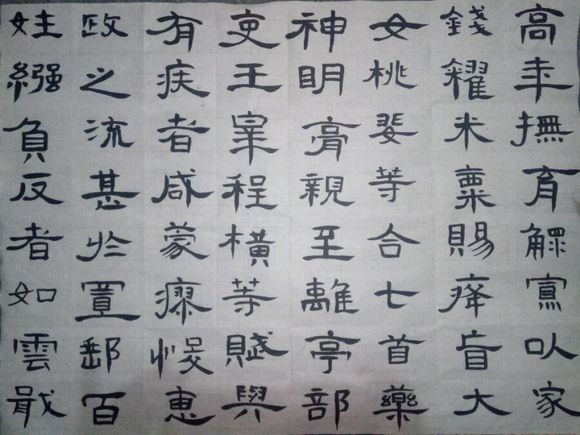 高年撫育鰥寡以家
錢糴米粟賜癃盲大
女桃婓等合七首藥
神明膏親至離亭部
吏王宰程橫等賦與
有疾者咸蒙瘳悛惠
政之流甚於置郵百
姓繦負反者如雲戢